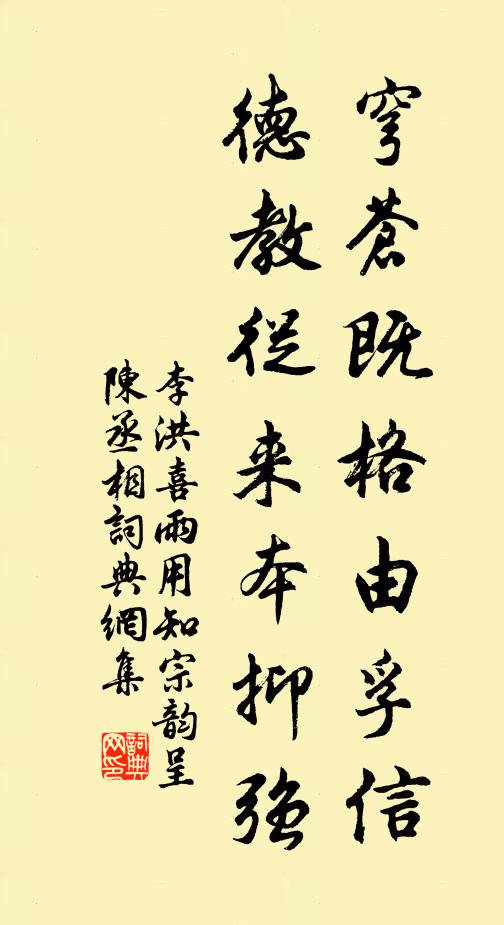 穹蒼既格由孚信
德教從来本抑強
李洪喜雨用知宗韵呈
陳丞相詞典網集
詞典
网印